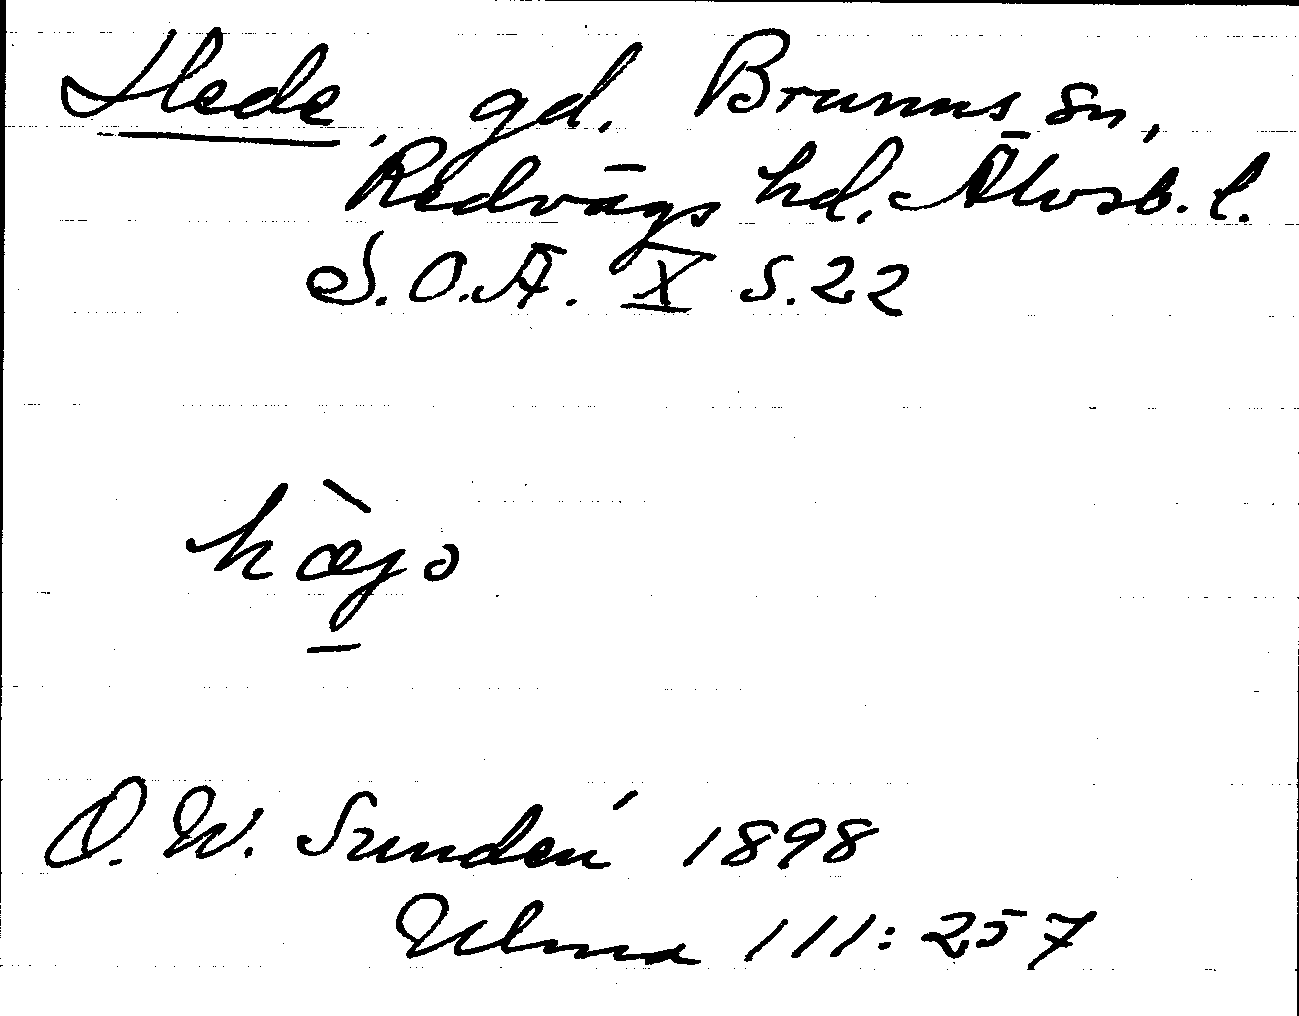 Hede, gd. Brunns sn,
Redvägs hd. Älvsb. l.
S.O.Ä. X S.22
hæ̀jo
D. W. Sundén 1898
Ulma 111:257